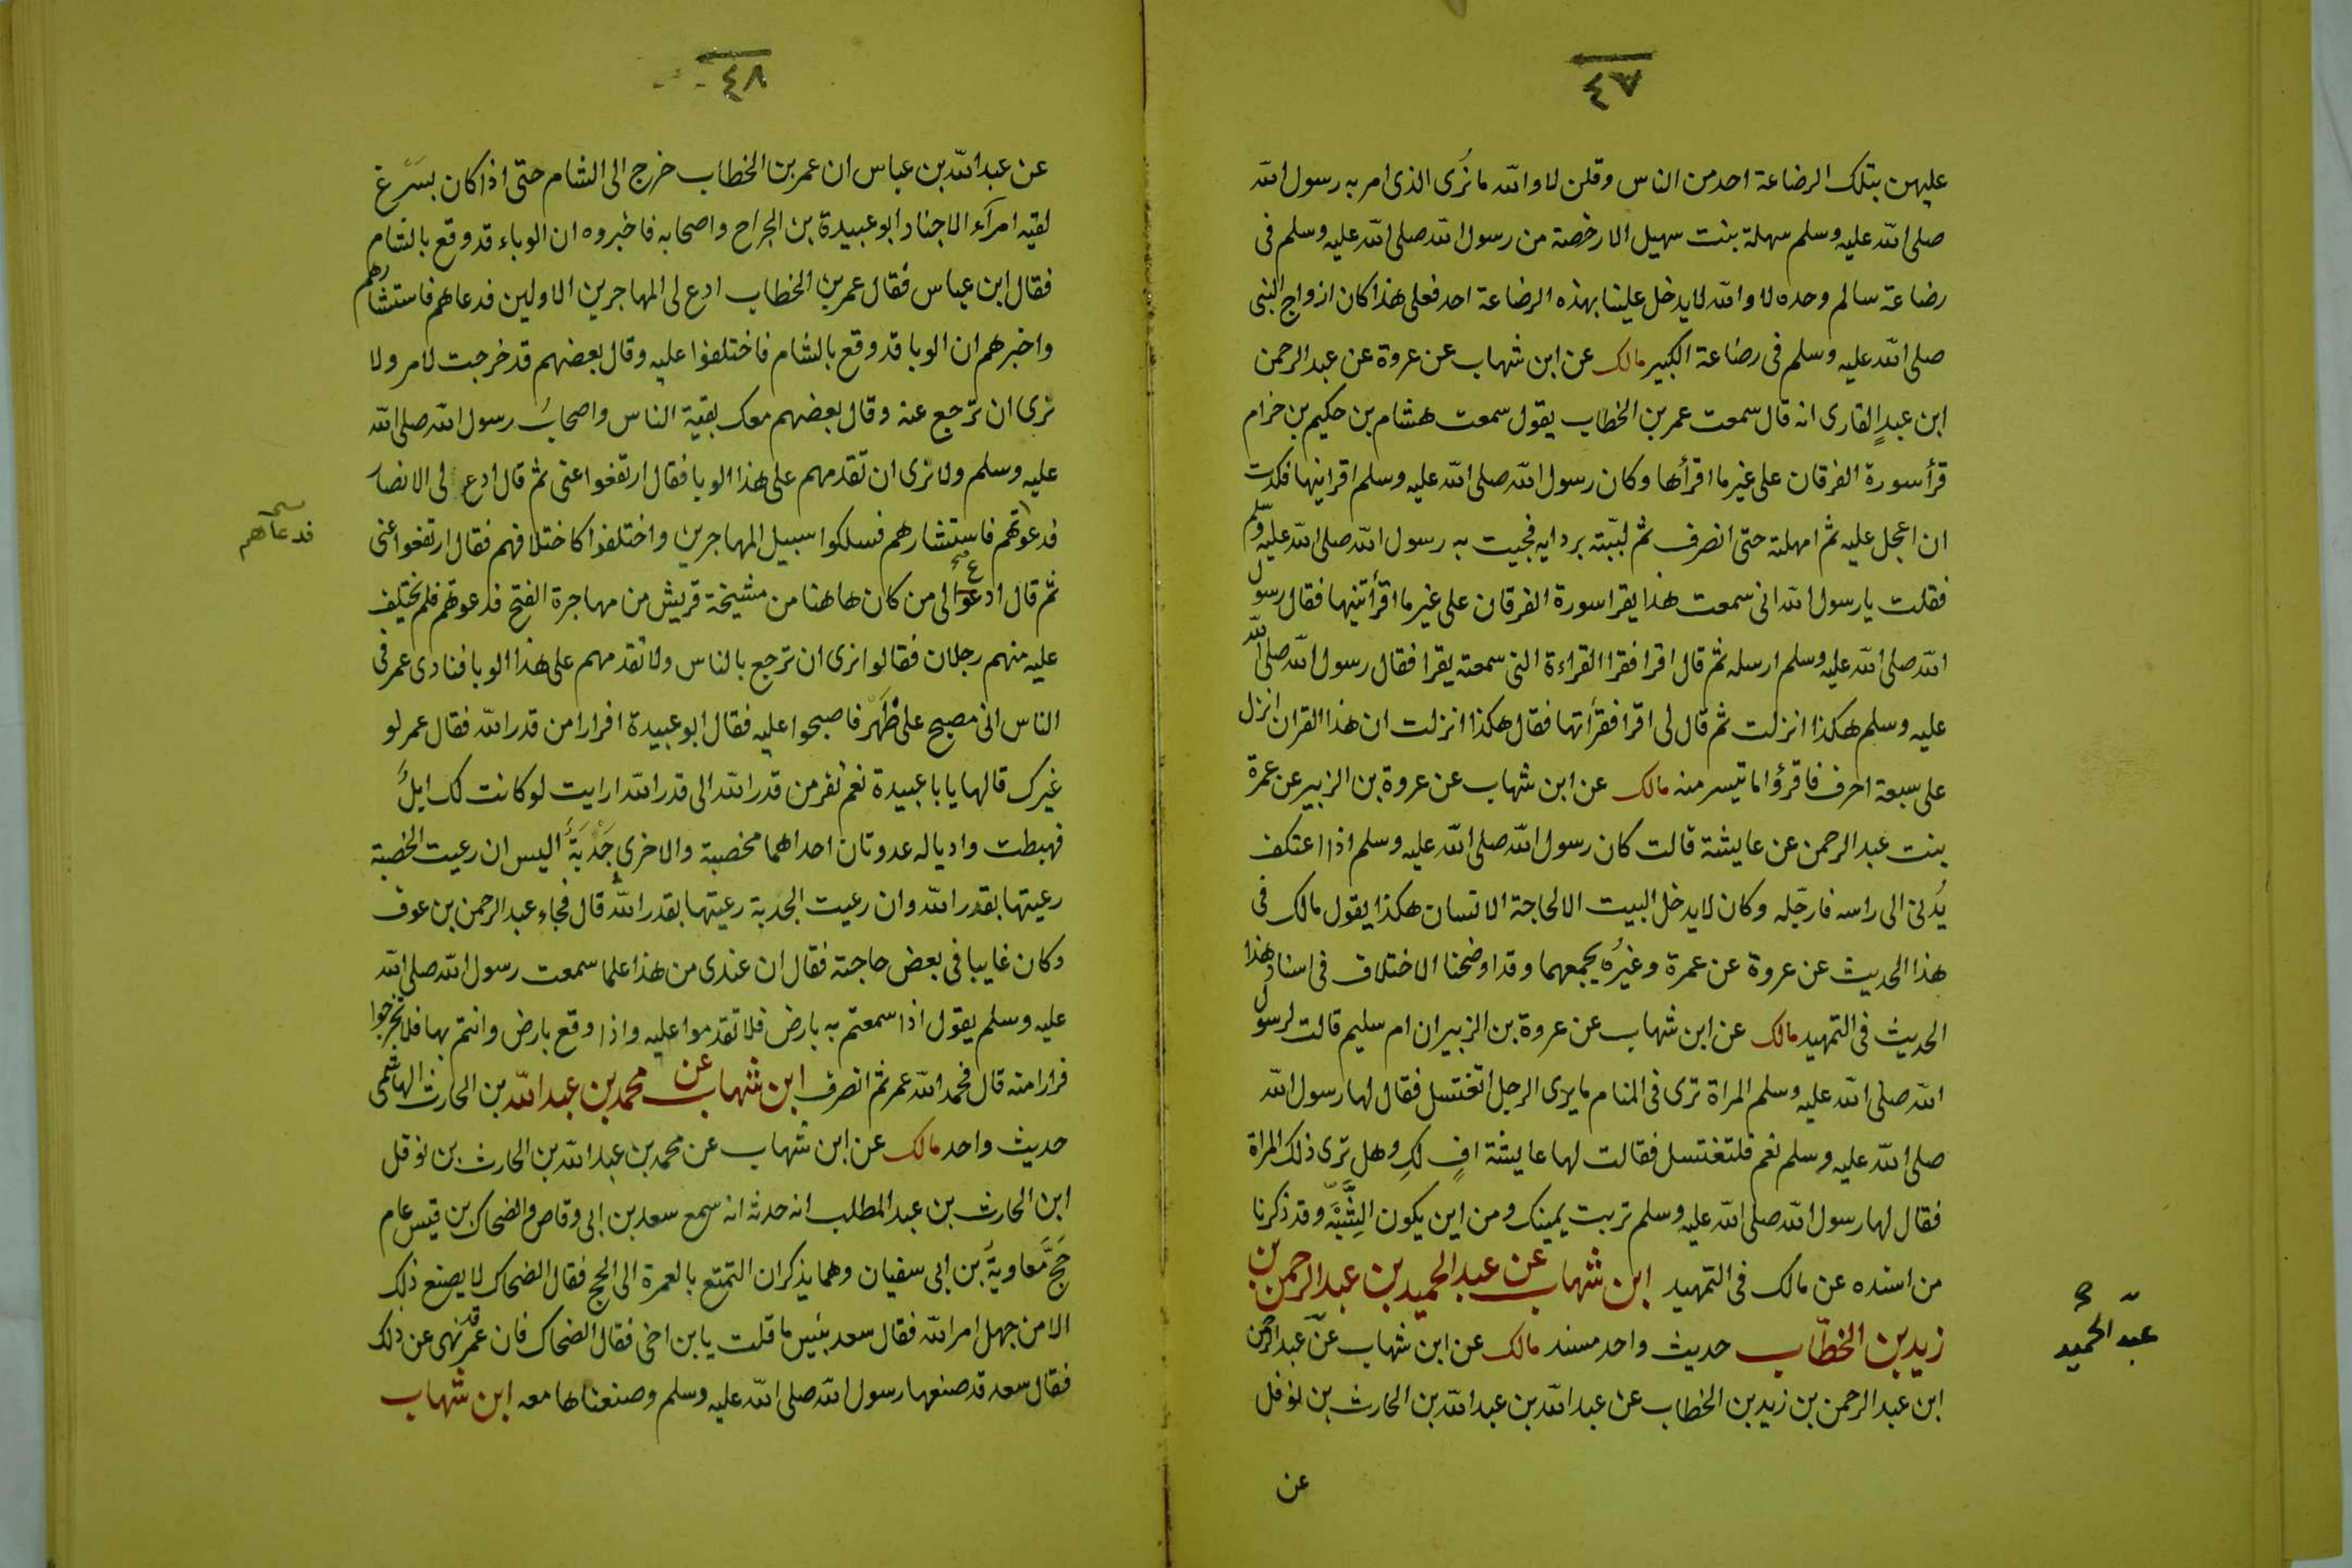 ٤٧
عليهن بتلك الرضاعة احد من الناس وقلن لا والله ما نُرى الذى امر به رسول الله
صلى الله عليه وسلم سهلة بنت سهيل الا رخصة من رسول الله صلى الله عليه وسلم فى
رضاعة سالم وحده لا والله لا يدخل علينا بهذه الرضاعة احد فعلى هذا كان ازواج النبى
صلى الله عليه وسلم فى رضاعة الكبير مالك عن ابن شهاب عن عروة عن عبد الرحمن
ابن عبدٍ القارى انه قال سمعت عمر بن الخطاب يقول سمعت هشام بن حكيم بن حزام
قرأ سورة الفرقان على غير ما اقرأها وكان رسول الله صلى الله عليه وسلم اقرانيها فكدت
ان اعجل عليه ثم امهلته حتى انصرف ثم لبّبته بردايه فجيت به رسول الله صلى الله عليه وسلم
فقلت يا رسول الله انى سمعت هذا يقرا سورة الفرقان على غير ما اقرأتنيها فقال رسول
الله صلى الله عليه وسلم ارسله ثم قال اقرا فقرا القراءة التى سمعته يقرا فقال رسول الله صلى الله
عليه وسلم هكذا انزلت ثم قال لى اقرا فقرأتها فقال هكذا انزلت ان هذا القران انزل
على سبعة احرف فاقرؤا ما تيسر منه مالك عن ابن شهاب عن عروة بن الزبير عن عمرة
بنت عبد الرحمن عن عايشة قالت كان رسول الله صلى الله عليه وسلم اذا اعتكف
يُدنى الى راسه فارجّله وكان لا يدخل البيت الا لحاجة الانسان هكذا يقول مالك فى
هذا الحديث عن عروة عن عمرة وغيرُه يجمعهما وقد اوضحنا الاختلاف فى اسناد هذا
الحديث فى التمهيد مالك عن ابن شهاب عن عروة بن الزبير ان ام سليم قالت لرسول
الله صلى الله عليه وسلم المراة ترى فى المنام ما يرى الرجل اتغتسل فقال لها رسول الله
صلى الله عليه وسلم نعم فلتغتسل فقالت لها عايشة افٍ لكِ وهل ترى ذلك المراة
فقال لها رسول الله صلى الله عليه وسلم تربت يمينك ومن اين يكون الشبه وقد ذكرنا
من اسنده عن مالك فى التمهيد ابن شهاب عن عبد الحميد بن عبد الرحمن بن
زيد بن الخطّاب حديث واحد مسند مالك عن ابن شهاب عن عبد الرحمن
عبد الحميد
ابن عبد الرحمن بن زيد بن الخطاب عن عبد الله بن عبد الله بن الحارث بن نوفل
عن
٤٨
عن عبد الله بن عباس ان عمر بن الخطاب خرج الى الشام حتى اذا كان بسَرْغ
لقيه امرآء الاجناد ابو عبيدة بن الجراح واصحابه فاخبروه ان الوباء قد وقع بالشام
فقال ابن عباس فقال عمر بن الخطاب ادع لى المهاجرين الاولين فدعاهم فاستشارهم
واخبرهم ان الوبا قد وقع بالشام فاختلفوا عليه وقال بعضهم قد خرجت لامر ولا
نرى ان ترجع عنه وقال بعضهم معك بقية الناس واصحابُ رسول الله صلى الله
عليه وسلم ولا نرى ان تقدمهم على هذا الوبا فقال ارتفعوا عنى ثم قال ادع لى الانصار
فدعوتهم فاستشارهم فسلكوا سبيل المهاجرين واختلفوا كاختلافهم فقال ارتفعوا عنى
فدعاهم
ثم قال ادعوا لى من كان هاهنا من مشيخة قريش من مهاجرة الفتح فدعوتهم فلم يختلف
عليه منهم رجلان فقالوا نرى ان ترجع بالناس ولا تقدمهم على هذا الوبا فنادى عمر فى
الناس انى مصبح على ظَهْرٍ فاصبحوا عليه فقال ابو عبيدة افرارا من قدر الله فقال عمر لو
غيرك قالها يابا عبيدة نعم نفر من قدر الله الى قدر الله ارايت لو كانت لك ابلٌ
فهبطت واديا له عدوتان احداهما مخصبة والاخرى جَدْبَةٌ اليس ان رعيت الخصبة
رعيتها بقدر الله وان رعيت الجدبة رعيتها بقدر الله قال فجاء عبد الرحمن بن عوف
وكان غايبا فى بعض حاجته فقال ان عندى من هذا علما سمعت رسول الله صلى الله
عليه وسلم يقول اذا سمعتم به بارض فلا تقدموا عليه واذا وقع بارض وانتم بها فلا تخرجوا
فرارا منه قال فحمد الله عمر ثم انصرف ابن شهاب عن محمد بن عبد الله بن الحارث الهاشمى
حديث واحد مالك عن ابن شهاب عن محمد بن عبد الله بن الحارث بن نوفل
ابن الحارث بن عبد المطلب انه حدثه انه سمع سعد بن ابى وقاص والضحاك بن قيس عام
حَجَّ مُعاويةُ بن ابى سفيان وهما يذكران التمتع بالعمرة الى الحج فقال الضحاك لا يصنع ذلك
الا من جهل امر الله فقال سعد بئس ما قلت يابن اخى فقال الضحاك فان عمر قد نهى عن ذلك
فقال سعد قد صنعها رسول الله صلى الله عليه وسلم وصنعناها معه ابن شهاب